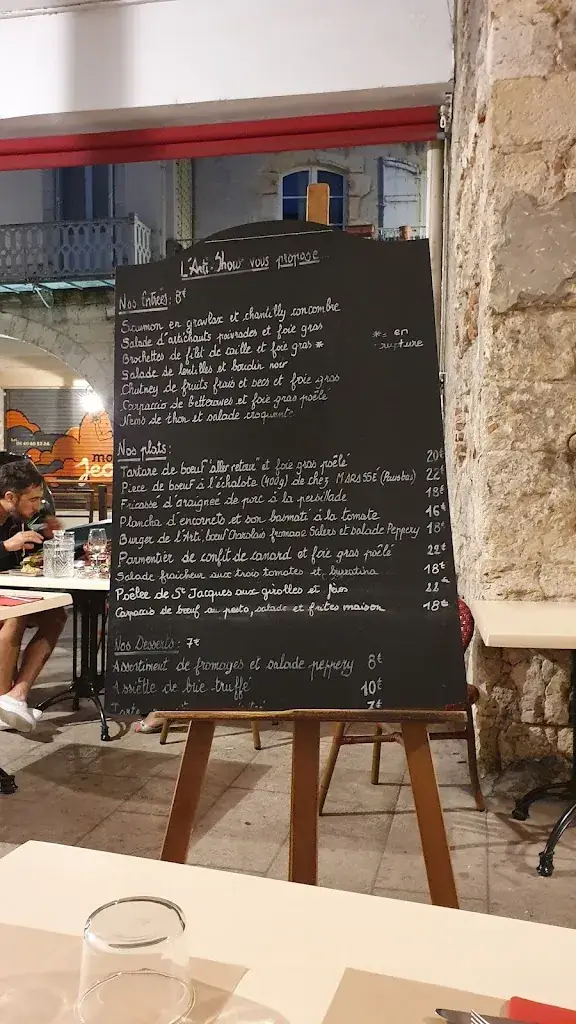 L'Arti-Show vous propose
Nos Entrées: 8€
Saumon en gravlax et chantilly concombre
Salade d'artichauts poivrades et foie gras
Brochettes de filet de caille et foie gras *
*= en rupture
Salade de lentilles et boudin noir
Chutney de fruits frais et secs et foie gras
Carpaccio de betteraves et foie gras poêlé
Nems de thon et salade croquante
Nos plats:
Tartare de boeuf "aller retour" et foie gras poêlé 20€
Piece de boeuf à l'échalote (400g) de chez MARASSE 22€
Fricassé d'araignée de porc à la persillade 18€
Plancha d'encornets et son basmati à la tomate 16€
Burger de l'Art, boeuf Charolais fromage Salers et salade Peppery 18€
Parmentier de confit de canard et foie gras poêlé 22€
Salade fraicheur aux trois tomates et burratina 18€
Poêlée de St Jacques aux girolles et 22€
Carpaccio de boeuf au pesto, salade et frites maison 18€
Nos Desserts: 7€
Assortiment de fromages et salade peppery 8€
Assiette de brie truffé 10€
7€